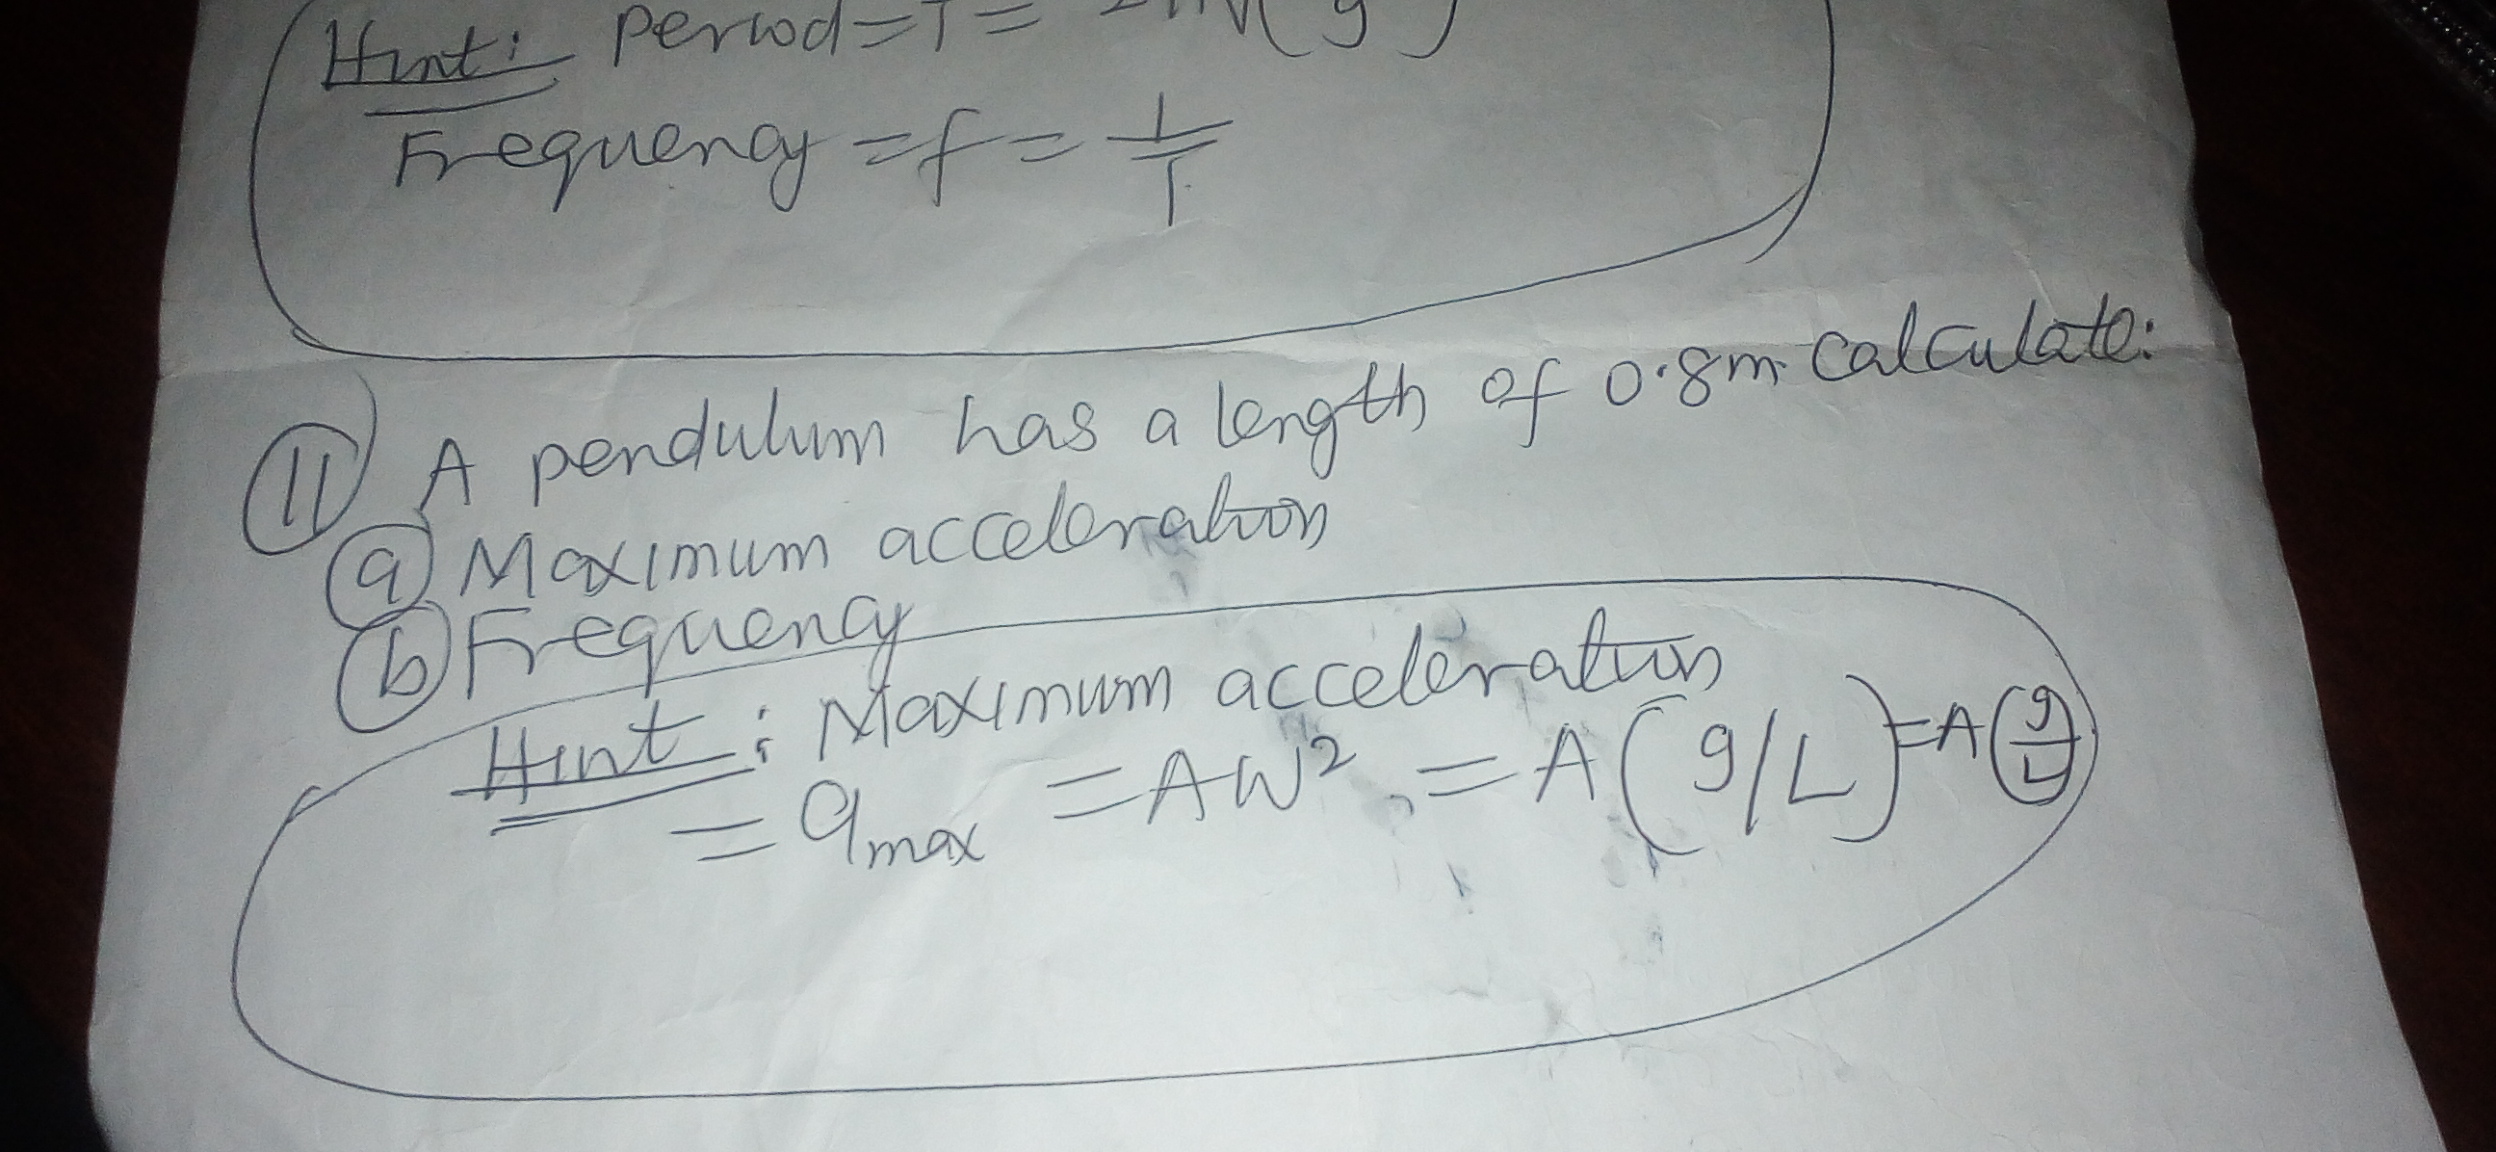 Hint: period=T=
Frequency =f= 1/T
11 A pendulum has a length of 0.8m calculate:
a Maximum acceleration
b Frequency
Hint: Maximum acceleration
= amax = AW² = A(g/L) = A(g/L)